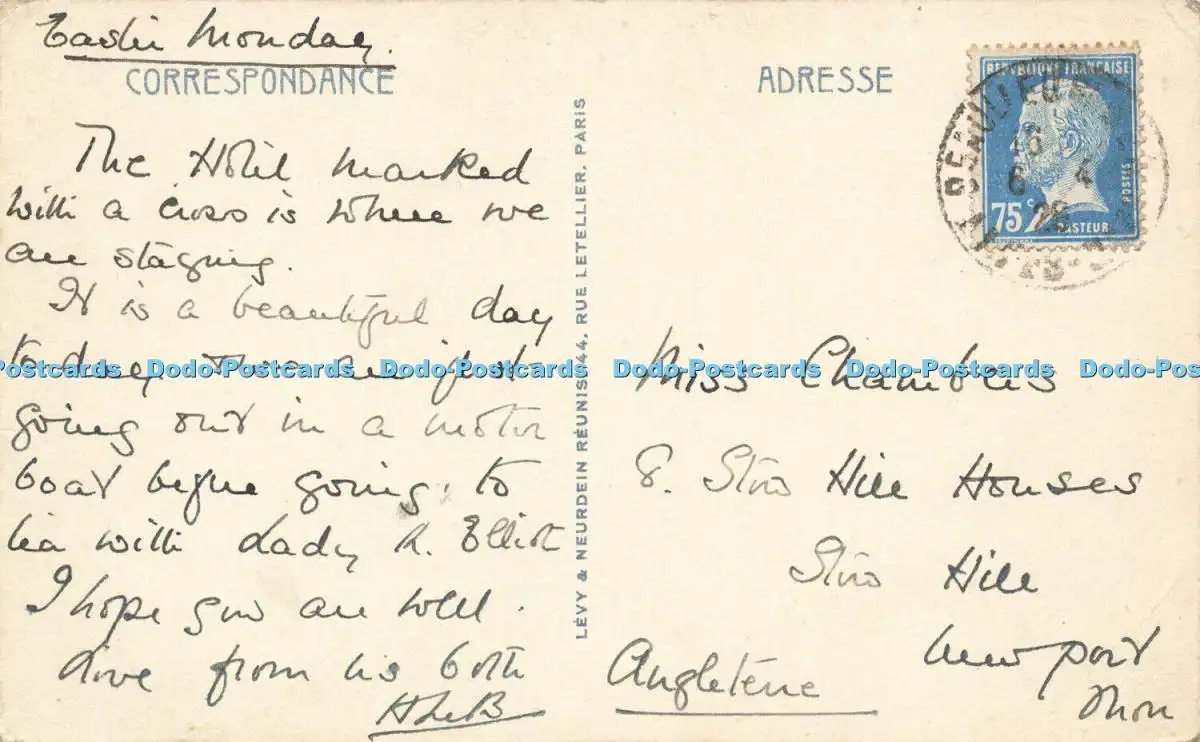 Easter Monday.
CORRESPONDANCE
The Hotel marked
with a cross is where we
are staying.
It is a beautiful day
today & we are just
going out in a motor
boat before going to
tea with Lady K. Elliot
I hope you are well.
Love from us both
LÉVY & NEURDEIN RÉUNIS, 44, RUE LETELLIER, PARIS
ADRESSE
RÉPUBLIQUE FRANÇAISE
POSTES
75c
PASTEUR
BEAULIEU
16
6 4
26
Miss Chambers
8. Stow Hill Houses
Stow Hill
Newport
Mon
Angleterre
Dodo-Postcards Dodo-Postcards Dodo-Postcards Dodo-Postcards